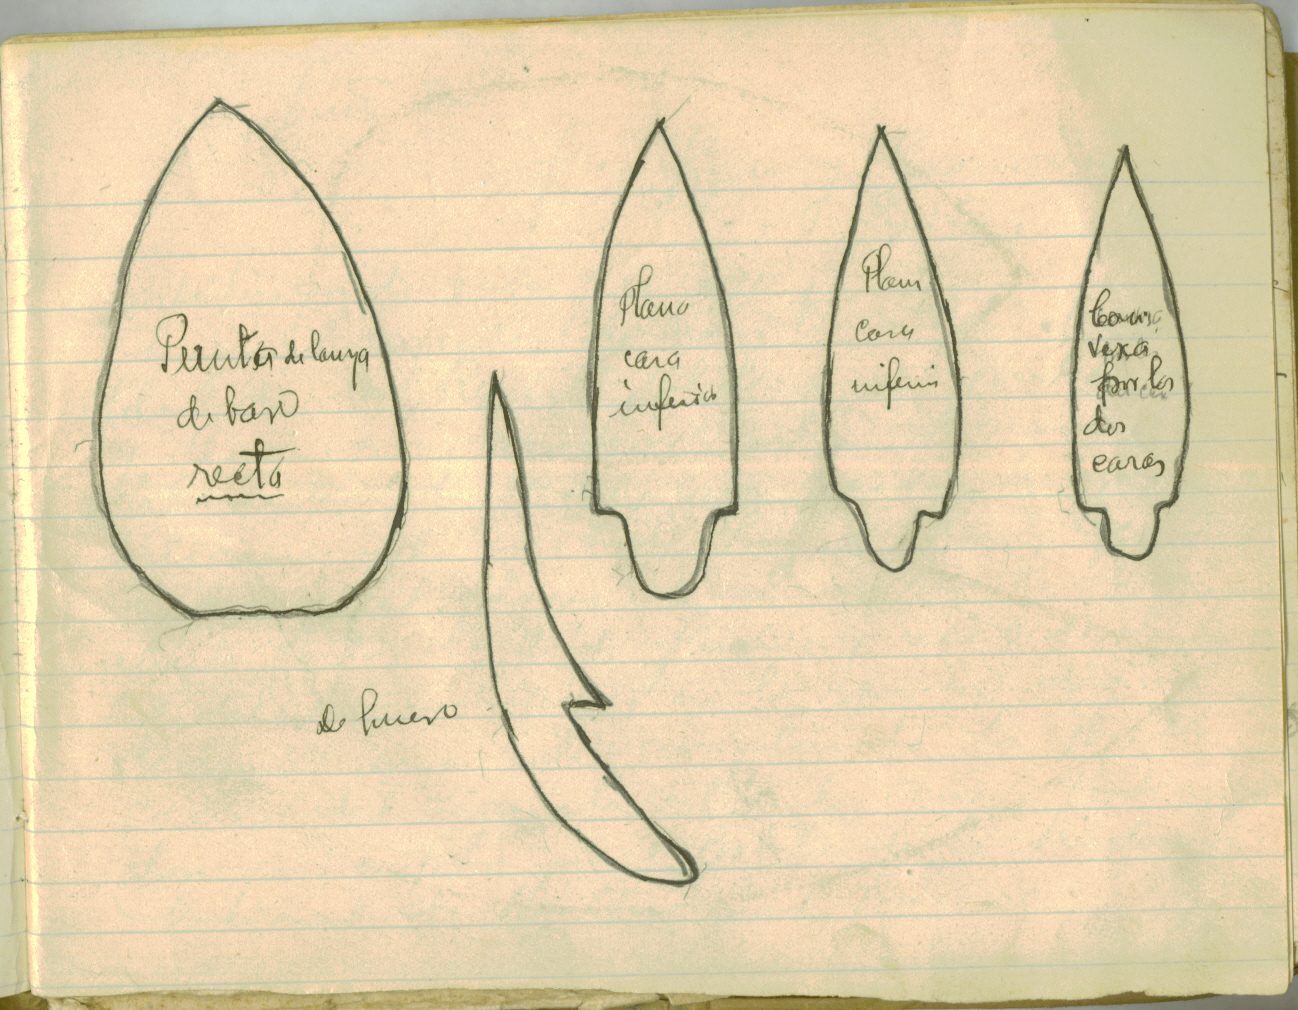 Punta de lanza
de base
recta
Plana
cara
inferior
Plana
cara
inferior
vexa
por las
dos
caras
de hueso